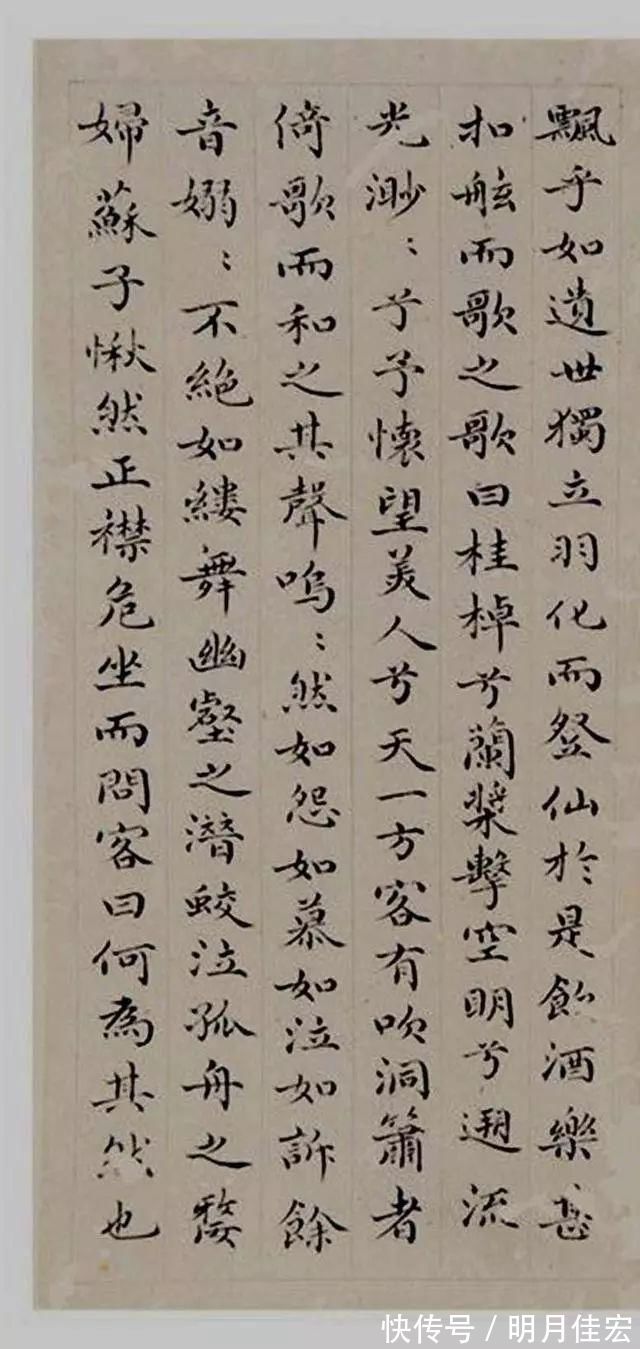 飄乎如遺世獨立羽化而登仙於是飲酒樂甚
扣舷而歌之歌曰桂棹兮蘭槳擊空明兮遡流
光渺〻兮予懷望美人兮天一方客有吹洞簫者
倚歌而和之其聲嗚〻然如怨如慕如泣如訴餘
音嫋〻不絕如縷舞幽壑之潛蛟泣孤舟之嫠
婦蘇子愀然正襟危坐而問客曰何為其然也
快传号／明月佳宏